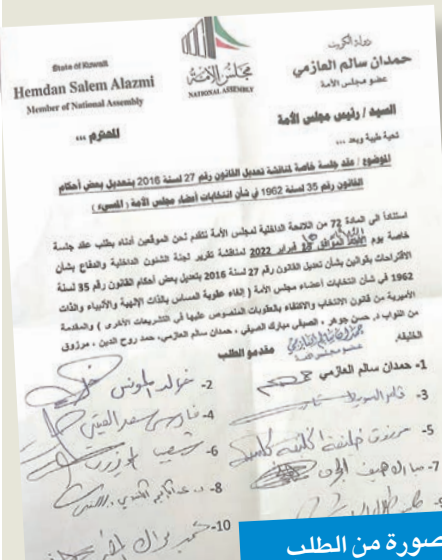 State of Kuwait
Hemdan Salem Alazmi
Member of National Assembly
مجلس الأمة
NATIONAL ASSEMBLY
دولة الكويت
حمدان سالم العازمي
عضو مجلس الأمة
السيد / رئيس مجلس الأمة
المحترم ...
تحية طيبة وبعد ...
الموضوع / عقد جلسة خاصة لمناقشة تعديل القانون رقم 27 لسنة 2016 بتعديل بعض أحكام
القانون رقم 35 لسنة 1962 في شأن انتخابات أعضاء مجلس الأمة ( المسيء )
استناداً الى المادة 72 من اللائحة الداخلية لمجلس الأمة نتقدم نحن الموقعين أدناه بطلب عقد جلسة
خاصة يوم الموافق فبراير 2022 لمناقشة تقرير لجنة الشئون الداخلية والدفاع بشأن
الاقتراحات بقوانين بشأن تعديل القانون رقم 27 لسنة 2016 بتعديل بعض أحكام القانون رقم 35 لسنة
1962 في شأن انتخابات أعضاء مجلس الأمة ( إلغاء عقوبة المساس بالذات الإلهية والأنبياء والذات
الأميرية من قانون الانتخاب والاكتفاء بالعقوبات المنصوص عليها في التشريعات الأخرى ) والمقدمة
من النواب د. حسن جوهر ، الصيفي مبارك الصيفي ، حمدان سالم العازمي، حمد روح الدين ، مرزوق
الخليفه.
مقدمو الطلب
عضو مجلس الأمة
1- حمدان سالم العازمي
2- خالد المونس
3-
4- فارس سعد العتيبي
5- مرزوق خليفة الخليفة
6- شعيب
7- مبارك هيف الحجرف
8- د. عبدالكريم الكندري
10-
صورة من الطلب